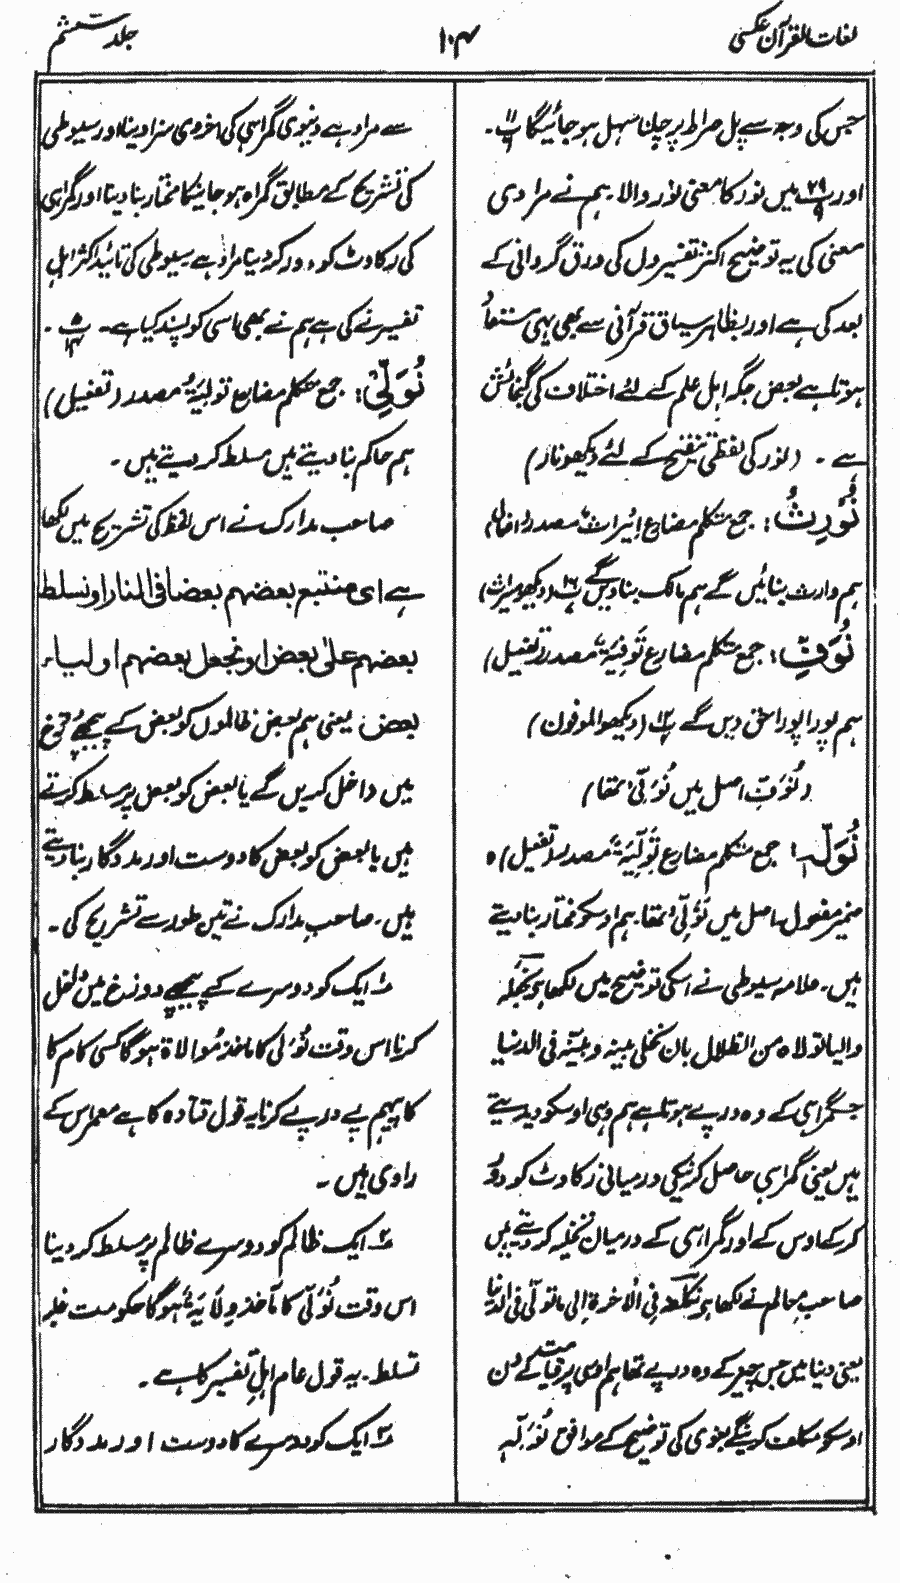 لغات القرآن عکسی
۱۰۴
جلد ششم
جس کی وجہ سے پل صراط پر چلنا سہل ہو جائیگا پ۱۱۔
اور پ۲۹ میں نور کا معنی نور والا۔ ہم نے مرادی
معنی کی یہ توضیح اکثر تفسیروں کی ورق گردانی کے
بعد کی ہے اور بظاہر سیاق قرآنی سے بھی یہی مستفاد
ہوتا ہے بعض جگہ اہل علم کے لئے اختلاف کی گنجائش
ہے۔ (نور کی لفظی تنقیح کے لئے دیکھو نار)
نُوْرِثُ: جمع متکلم مضارع اِیْرَاثٌ مصدر (افعال)
ہم وارث بنائیں گے ہم مالک بنا دیں گے پ۱۶ (دیکھو میراث)
نُوَفِّ: جمع متکلم مضارع تَوْفِیَۃٌ مصدر (تفعیل)
ہم پورا پورا حق دیں گے پ۱۲ (دیکھو الموفون)
(نُوَفِّ اصل میں نُوَفِّیْ تھا)
نُوَلِّہٖ: جمع متکلم مضارع تَوْلِیَۃٌ مصدر (تفعیل) ہ
ضمیر مفعول۔ اصل میں نُوَلِّیْ تھا۔ ہم اوسکو مختار بنا دیتے
ہیں۔ علامہ سیوطی نے اسکی توضیح میں لکھا ہو نجعلہ
والیا لما تولاہ من الضلال بان نخلی بینہ وبینہ فی الدنیا
جس گمراہی کے وہ درپے ہوتا ہے ہم وہی اوسکو دیدیتے
ہیں یعنی گمراہی حاصل کرنیکی درمیانی رکاوٹ کو دور
کر کے اوس کے اور گمراہی کے درمیان تخلیہ کر دیتے ہیں
صاحب معالم نے لکھا ہو نکلہ فی الاٰخرۃ الی ما تولّٰی فی الدنیا
یعنی دنیا میں جس چیز کے وہ درپے تھا ہم اوسی پر قیامت کے دن
اوسکو مکلف کرینگے بغوی کی توضیح کے موافق نُوَلِّہٖ
سے مراد ہے دنیوی گمراہی کی اخروی سزا دینا اور سیوطی
کی تشریح کے مطابق گمراہ ہو جانیکا مختار بنا دینا اور گمراہی
کی رکاوٹ کو دور کر دینا مراد ہے سیوطی کی تائید اکثر اہل
تفسیر نے کی ہے ہم نے بھی اسی کو پسند کیا ہے۔ پ۵۔
نُوَلِّیْ: جمع متکلم مضارع تولِیَۃٌ مصدر (تفعیل)
ہم حاکم بنا دیتے ہیں مسلط کر دیتے ہیں۔
صاحب مدارک نے اس لفظ کی تشریح میں لکھا
ہے ای منتبع بعضہم بعضا فی النار او نسلط
بعضہم علیٰ بعض او نجعل بعضہم اولیاء
بعض، یعنی ہم بعض ظالموں کو بعض کے پیچھے دوزخ
میں داخل کریں گے یا بعض کو بعض پر مسلط کرتے
ہیں یا بعض کو بعض کا دوست اور مددگار بنا دیتے
ہیں۔ صاحب مدارک نے تین طور سے تشریح کی۔
۱؎ ایک کو دوسرے کے پیچھے دوزخ میں داخل
کرنا اس وقت نُوَلِّی کا ماخذ مُوالاۃ ہوگا کسی کام کا
کا پیہم پے درپے کرنا یہ قول قتادہ کا ہے معمر اس کے
راوی ہیں۔
۲؎ ایک ظالم کو دوسرے ظالم پر مسلط کر دینا
اس وقت نُوَلِّیْ کا مآخذ وِلَایَۃٌ ہوگا حکومت غلبہ
تسلط۔ یہ قول عام اہلِ تفسیر کا ہے۔
۳؎ ایک کو دوسرے کا دوست اور مددگار